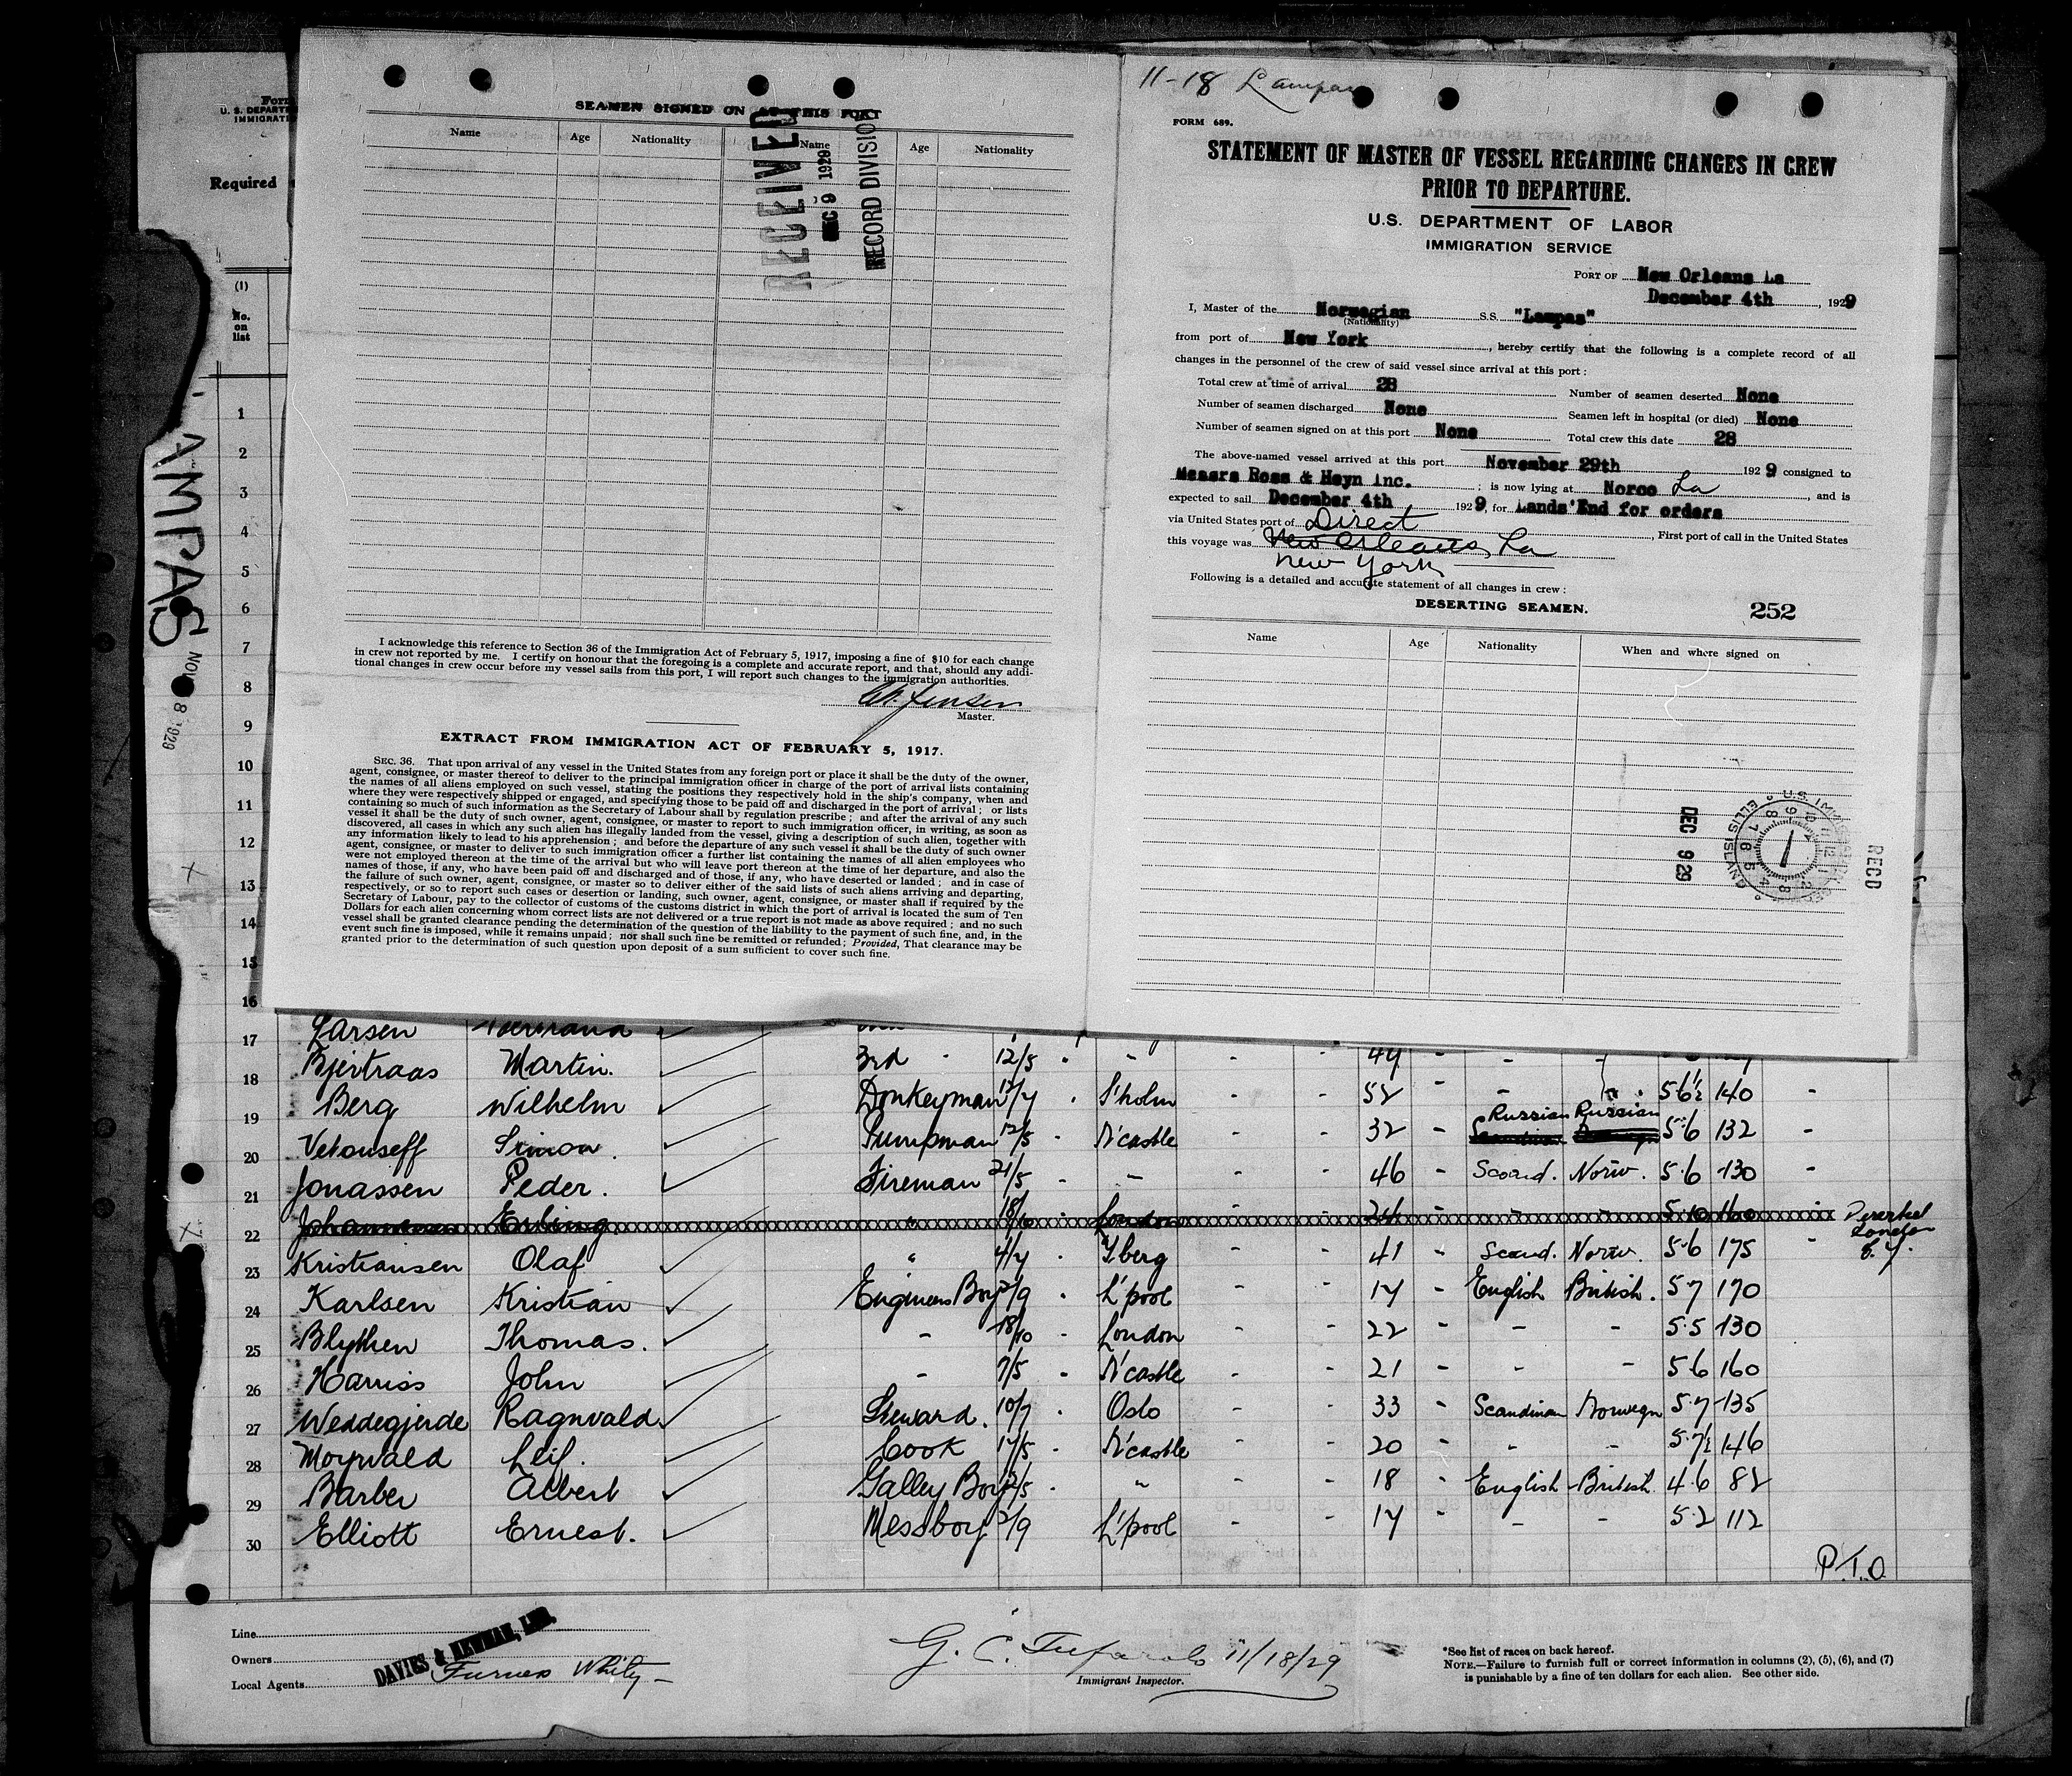 Form
U. S. DEPARTM
IMMIGRATI
Required
(1)
No.
on
list
1
2
3
4
5
6
7
8
9
10
11
12
13
14
15
16
AMPAS
NOV 18 1929
SEAMEN SIGNED ON AT THIS PORT
Name Age Nationality Name Age Nationality
RECEIVED
DEC 9 1929
RECORD DIVISION
I acknowledge this reference to Section 36 of the Immigration Act of February 5, 1917, imposing a fine of $10 for each change
in crew not reported by me. I certify on honour that the foregoing is a complete and accurate report, and that, should any addi-
tional changes in crew occur before my vessel sails from this port, I will report such changes to the immigration authorities.
Jensen
Master.
EXTRACT FROM IMMIGRATION ACT OF FEBRUARY 5, 1917.
SEC. 36. That upon arrival of any vessel in the United States from any foreign port or place it shall be the duty of the owner,
agent, consignee, or master thereof to deliver to the principal immigration officer in charge of the port of arrival lists containing
the names of all aliens employed on such vessel, stating the positions they respectively hold in the ship's company, when and
where they were respectively shipped or engaged, and specifying those to be paid off and discharged in the port of arrival; or lists
containing so much of such information as the Secretary of Labour shall by regulation prescribe; and after the arrival of any such
vessel it shall be the duty of such owner, agent, consignee, or master to report to such immigration officer, in writing, as soon as
discovered, all cases in which any such alien has illegally landed from the vessel, giving a description of such alien, together with
any information likely to lead to his apprehension; and before the departure of any such vessel it shall be the duty of such owner
agent, consignee, or master to deliver to such immigration officer a further list containing the names of all alien employees who
were not employed thereon at the time of the arrival but who will leave port thereon at the time of her departure, and also the
names of those, if any, who have been paid off and discharged and of those, if any, who have deserted or landed; and in case of
the failure of such owner, agent, consignee, or master so to deliver either of the said lists of such aliens arriving and departing,
respectively, or so to report such cases or desertion or landing, such owner, agent, consignee, or master shall if required by the
Secretary of Labour, pay to the collector of customs of the customs district in which the port of arrival is located the sum of Ten
Dollars for each alien concerning whom correct lists are not delivered or a true report is not made as above required; and no such
vessel shall be granted clearance pending the determination of the question of the liability to the payment of such fine, and, in the
event such fine is imposed, while it remains unpaid; nor shall such fine be remitted or refunded; Provided, That clearance may be
granted prior to the determination of such question upon deposit of a sum sufficient to cover such fine.
11-18 Lampas
FORM 689.
STATEMENT OF MASTER OF VESSEL REGARDING CHANGES IN CREW
PRIOR TO DEPARTURE.
U.S. DEPARTMENT OF LABOR
IMMIGRATION SERVICE
PORT OF New Orleans La
December 4th, 1929
I, Master of the Norwegian S.S. "Lampas"
(Nationality)
from port of New York, hereby certify that the following is a complete record of all
changes in the personnel of the crew of said vessel since arrival at this port:
Total crew at time of arrival 28 Number of seamen deserted None
Number of seamen discharged None Seamen left in hospital (or died) None
Number of seamen signed on at this port None Total crew this date 28
The above-named vessel arrived at this port November 29th 1929 consigned to
Messrs Ross & Heyn Inc.; is now lying at Norco La, and is
expected to sail December 4th 1929, for Lands'End for orders
via United States port of Direct, First port of call in the United States
this voyage was New Orleans, La
New York
Following is a detailed and accurate statement of all changes in crew:
DESERTING SEAMEN. 252
Name Age Nationality When and where signed on
DEC 9 29
U.S. IMMI
ELLIS ISLAND
RECD
17 Larsen
18 Bjertraas Martin. 3rd " 12/5 " " - - 44 - - -
19 Berg Wilhelm Donkeyman " S'holm - - 52 - - 5·6½ 140
20 Vetouseff Simon. Pumpman 12/5 - N'castle - - 32 - Russian Russian 5·6 132 -
21 Jonassen Peder. Fireman 21/5 - - - - 46 - Scand. Norw. 5·6 130 -
22 Johannesen Erling " 18/10 London 24 - - 5·10 160 London
23 Kristiansen Olaf " 4/7 - - - 41 - Scand. Norw. 5·6 175 -
24 Karlsen Kristian Engineers Boy 2/9 - L'pool - - 17 - English British. 5·7 170
25 Blythen Thomas. - 18/10 - London - - 22 - - - 5·5 130
26 Harriss John - 7/5 - N'castle - - 21 - - - 5·6 160
27 Weddegjerde Ragnvald Steward. 10/7 - Oslo - - 33 - Scandinan Norwegn 5·7 135
28 Moywald Leif. Cook 17/5 - N'castle - - 20 - - - 5·7½ 146
29 Barber Albert Galley Boy - " - - 18 - English British. 4·6 82
30 Elliott Ernest. Messboy 2/9 L'pool - - 17 - - 5·2 112
P.T.O
Line
Owners DAVIES & NEWMAN, LTD.
Local Agents Furness Whity
G. C. 11/18/29
Immigrant Inspector.
*See list of races on back hereof.
NOTE.—Failure to furnish full or correct information in columns (2), (5), (6), and (7)
is punishable by a fine of ten dollars for each alien. See other side.